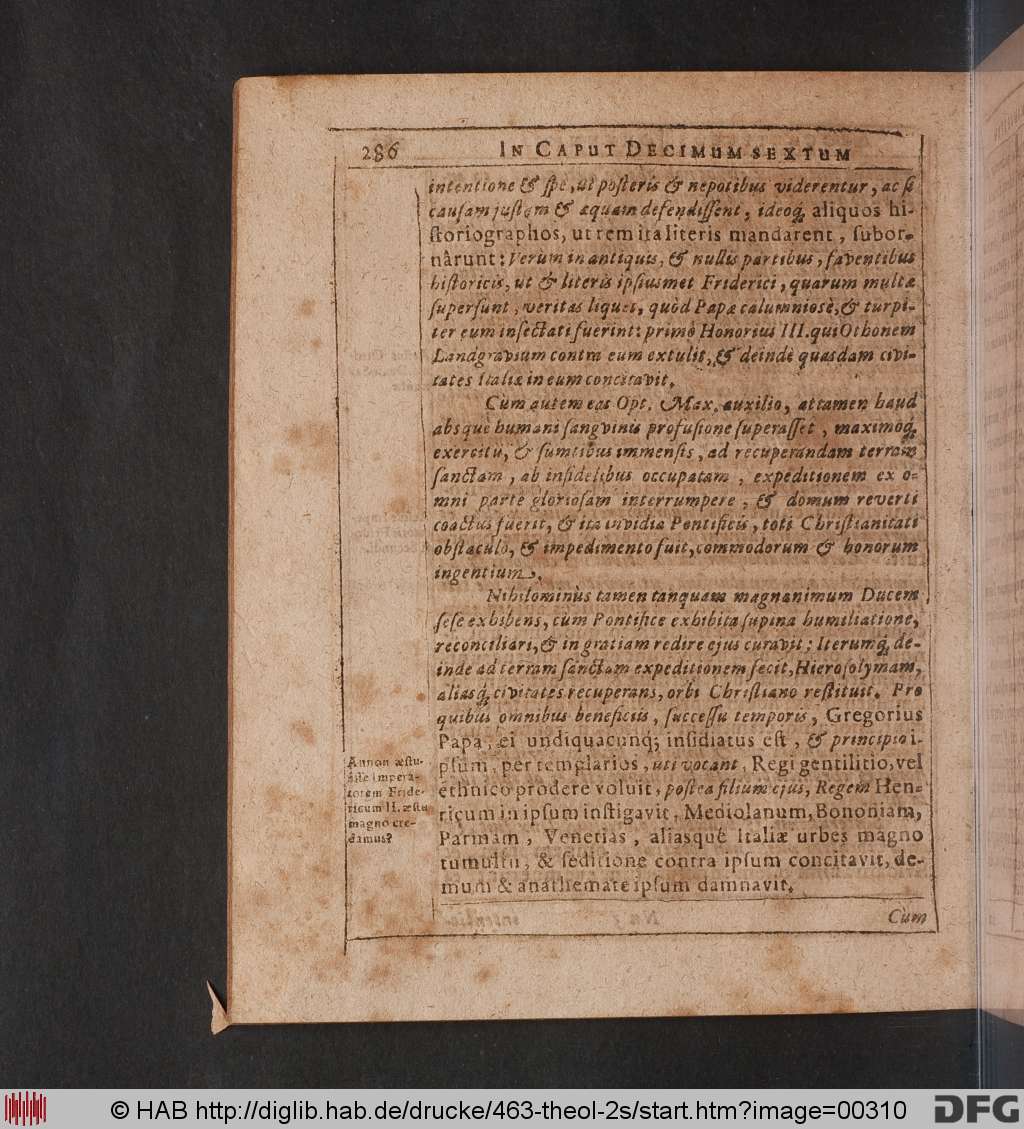 286 IN CAPUT DECIMUM SEXTUM
intentione & spe, ut posteris & nepotibus viderentur, ac si
causam justam & æquam defendissent, ideoq; aliquos hi-
ſtoriographos, ut rem ita literis mandarent, ſubor-
nârunt: Verum in antiquis, & nullis partibus, faventibus
hiſtoricis, ut & literis ipſiusmet Friderici, quarum multæ
ſuperſunt, veritas liquet, quòd Papæ calumnioſè, & turpi-
ter eum inſectati fuerint: primò Honorius III. qui Othonem
Landgravium contra eum extulit, & deindè quasdam civi-
tates Italiæ in eum concitavit.
Cùm autem eas Opt. Max. auxilio, attamen haud
absque humani ſangvinis profuſione ſuperaſſet, maximoq;
exercitu, & ſumtibus immenſis, ad recuperandam terram
ſanctam, ab infidelibus occupatam, expeditionem ex o-
mni parte glorioſam interrumpere, & domum reverti
coactus fuerit, & ita invidia Pontificis, toti Chriſtianitati
obſtaculo, & impedimento fuit, commodorum & honorum
ingentium.
Nihilominùs tamen tanquam magnanimum Ducem
ſeſe exhibens, cùm Pontifice exhibita ſupina humiliatione,
reconciliari, & in gratiam redire ejus curavit; Iterumq; de-
inde ad terram ſanctam expeditionem fecit, Hieroſolymam,
aliasq; civitates recuperans, orbi Chriſtiano reſtituit. Pro
quibus omnibus beneficiis, ſucceſſu temporis, Gregorius
Papa, ei undiquacunq; inſidiatus eſt, & principio i-
pſum, per templarios, uti vocant, Regi gentilitio, vel
ethnico prodere voluit, poſtea filium ejus, Regem Hen-
ricum in ipſum inſtigavit, Mediolanum, Bononiam,
Parmam, Venetias, aliasque Italiæ urbes magno
tumultu, & ſeditione contra ipſum concitavit, de-
mum & anathemate ipſum damnavit.
Cùm
Annon æſtu-
áſſe Impera-
torem Fride-
ricum II. æſtu
magno cre-
damus?
© HAB http://diglib.hab.de/drucke/463-theol-2s/start.htm?image=00310
DFG